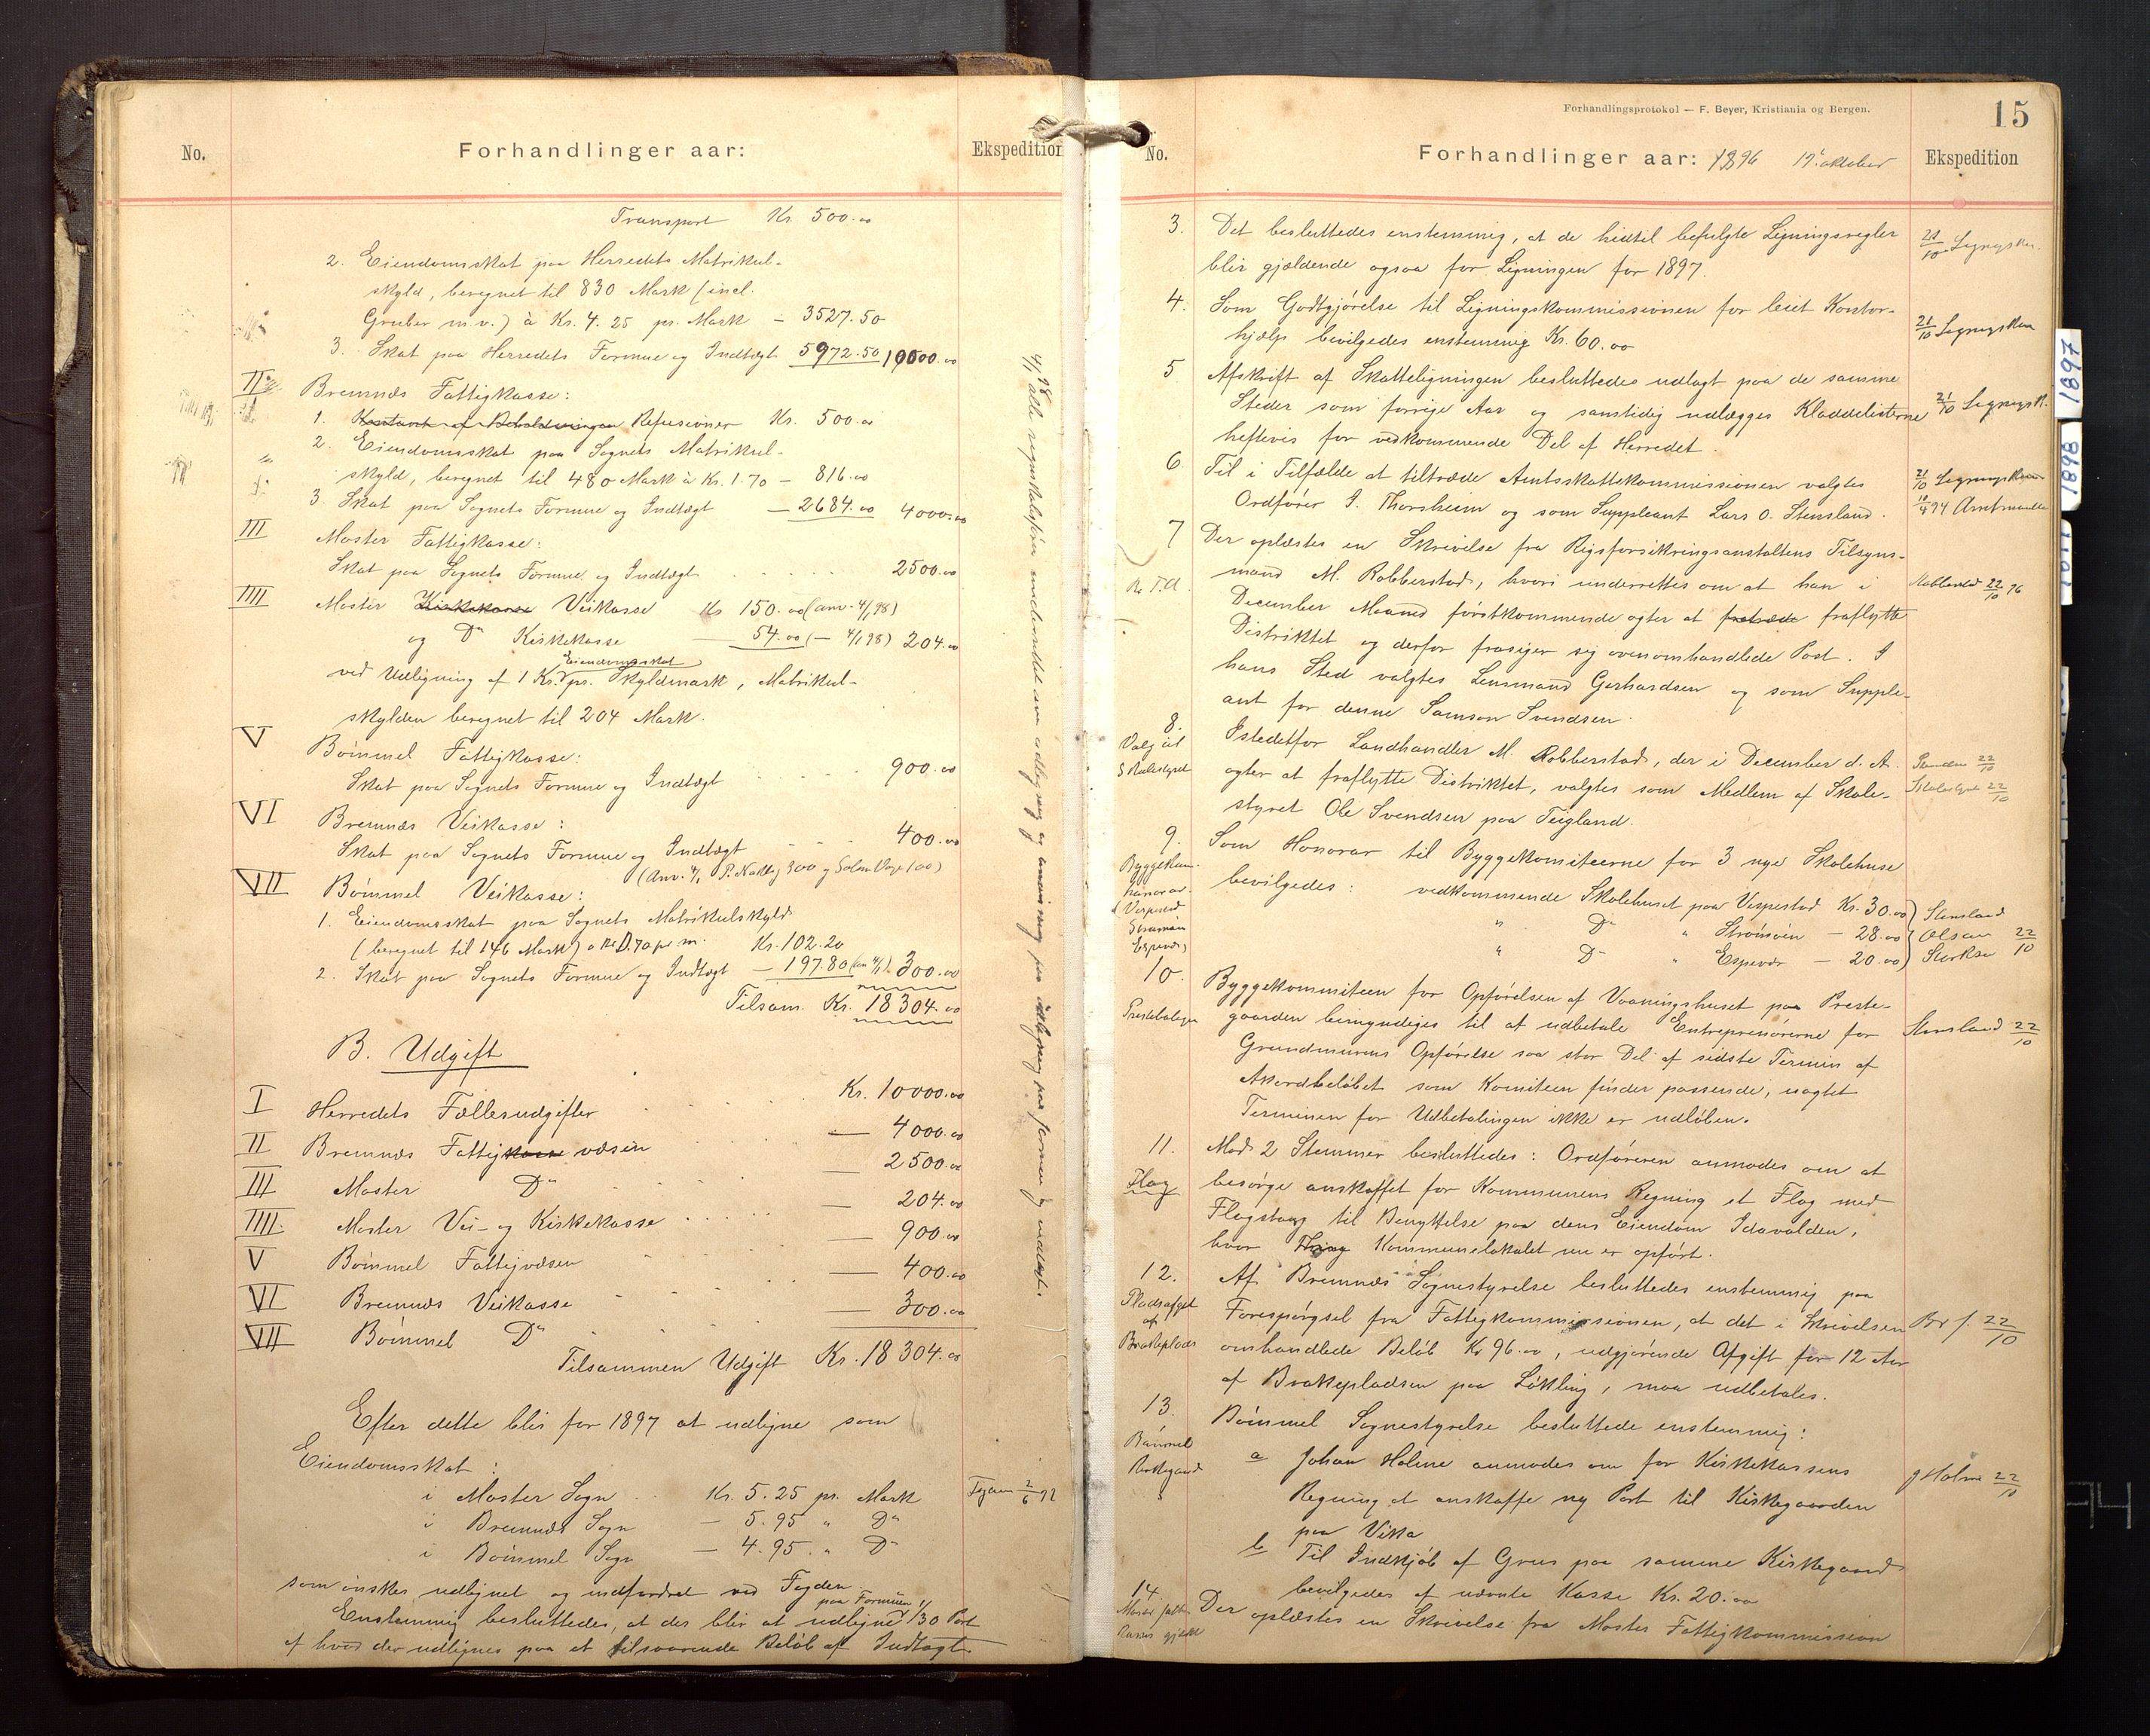 No.
Forhandlinger aar:
Ekspedition
Transport Kr. 500.00
2. Eiendomsskat paa Herredets Matrikul-
skyld, beregnet til 830 Mark (incl.
Gruber m.v.) à Kr. 4.25 pr. Mark - 3527.50
3. Skat paa Herredets Formue og Indtægt 5972.50 10000.00
II Bremnæs Fattigkasse:
1. Refusioner Kr. 500.00
2. Eiendomsskat paa Sognets Matrikul-
skyld, beregnet til 480 Mark à Kr. 1.70 - 816.00
3. Skat paa Sognets Formue og Indtægt - 2684.00 4000.00
III Moster Fattigkasse:
Skat paa Sognets Formue og Indtægt 2500.00
IIII Moster Kirkekasse Veikasse Kr 150.00 (anv. 4/1 98)
og Do Kirkekasse 54.00 (- 4/1 98) 204.00
Eiendomsskat
ved Udligning af 1 Kr. pr. Skyldmark, Matrikul-
skylden beregnet til 204 Mark.
V Bömmel Fattigkasse:
Skat paa Sognets Formue og Indtægt 900.00
VI Bremnæs Veikasse:
Skat paa Sognets Formue og Indtægt 400.00
VII Bömmel Veikasse:
1. Eiendomsskat paa Sognets Matrikulskyld
(beregnet til 146 Mark) a Kr. 0.70 pr m. Kr. 102.20
2. Skat paa Sognets Formue og Indtægt - 197.80 300.00
Tilsam. Kr. 18304.00
B. Udgift
I Herredets Fællesudgifter Kr. 10000.00
II Bremnæs Fattigkasse væsen — 4000.00
III Moster Do — 2500.00
IIII. Moster Vei- og Kirkekasse — 204.00
V Bömmel Fattigvæsen — 900.00
VI Bremnæs Veikasse — 400.00
VII Bömmel Do — 300.00
Tilsammen Udgift Kr. 18304.00
Efter dette blir for 1897 at udligne som
Eiendomsskat:
i Moster Sogn Kr. 5.25 pr. Mark
i Bremnæs Sogn - 5.95 " Do
i Bömmel Sogn - 4.95 " Do
som ønskes udlignet og indfordret ved Fogden
paa Formuen
Enstemmig besluttedes, at der blir at udligne 1/30 Part
af hvad der udlignes paa et tilsvarende Beløb af Indtægt.
Forhandlingsprotokol — F. Beyer, Kristiania og Bergen.
15
No.
Forhandlinger aar: 1896 19' oktober
Ekspedition
3. Det besluttedes enstemmig, at de hidtil befulgte Ligningsregler
blir gjældende ogsaa for Ligningen for 1897.
4. Som Godtgjörelse til Ligningskommissionen for leiet Kontor-
hjælp bevilgedes enstemmig Kr. 60.00
5 Afskrift af Skatteligningen besluttedes udlagt paa de samme
Steder som forrige Aar og samtidig udlægges Kladdelisterne
heftevis for vedkommende Del af Herredet.
6 Til i Tilfælde at tiltræde Amtsskattekommissionen valgtes
Ordförer I. Thorsheim og som Suppleant Lars O. Stensland.
7 Der oplæstes en Skrivelse fra Rigsforsikringsanstaltens Tilsyns-
mand M. Robberstad, hvori underrettes om at han i
December Maaned förstkommende agter at fratræde fraflytte
Distriktet og derfor frasiger sig ovenomhandlede Post. I
hans Sted valgtes Lensmand Gerhardsen og som Supple-
ant for denne Samson Svendsen.
8. Istedetfor Landhandler M Robberstad, der i December d. A.
agter at fraflytte Distriktet, valgtes som Medlem af Skole-
styret Ole Svendsen paa Teigland.
9. Som Honorar til Byggekomiteerne for 3 nye Skolehuse
bevilgedes: vedkommende Skolehuset paa Vespestad Kr. 30.00
" Do " Strömöen - 28.00
" Do " Espevær - 20.00
Stensland
Olsen 22/10
10. Byggekommiteen for Opförelsen af Vaaningshuset paa Preste-
gaarden bemyndiges til at udbetale Entreprenörerne for
Grundmurens Opförelse saa stor Del af sidste Termin af
Akordbelöbet som Komiteen finder passende, uagtet
Terminen for Udbetalingen ikke er udlöben.
Stensland 22/10
11. Mod 2 Stemmer besluttedes: Ordföreren anmodes om at
Flag
besörge anskaffet for Kommunens Regning et Flag med
Flagstang til Benyttelse paa dens Eiendom Idavolden,
hvor Kommunelokalet nu er opfört.
12. Af Bremnæs Sognestyrelse besluttedes enstemmig paa
Forespörgsel fra Fattigkommissionen, at det i Skrivelsen
omhandlede Belöb Kr 96.00, udgjörende Afgift for 12 Aar
af Brakepladsen paa Lökling, maa udbetales.
13. Bömmel Sognestyrelse besluttede enstemmig:
a Johan Holme anmodes om for Kirkekassens
Regning at anskaffe ny Port til Kirkegaarden
paa Vika
J Holme 22/10
b Til Indkjöb af Grus paa samme Kirkegaard
bevilgedes af nævnte Kasse Kr. 20.00
14. Der oplæstes en Skrivelse fra Moster Fattigkommission
1897
1898